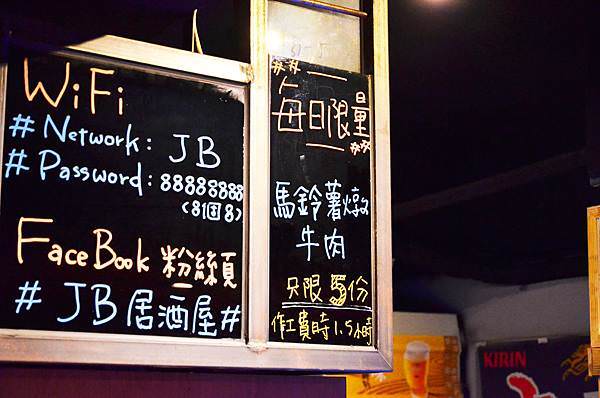 WiFi
# Network: JB
# Password: 88888888
(8個8)
FaceBook 粉絲頁
# JB居酒屋#
## 每日限量 ##
馬鈴薯燉
牛肉
只限5份
作工費時1.5小時
KIRIN